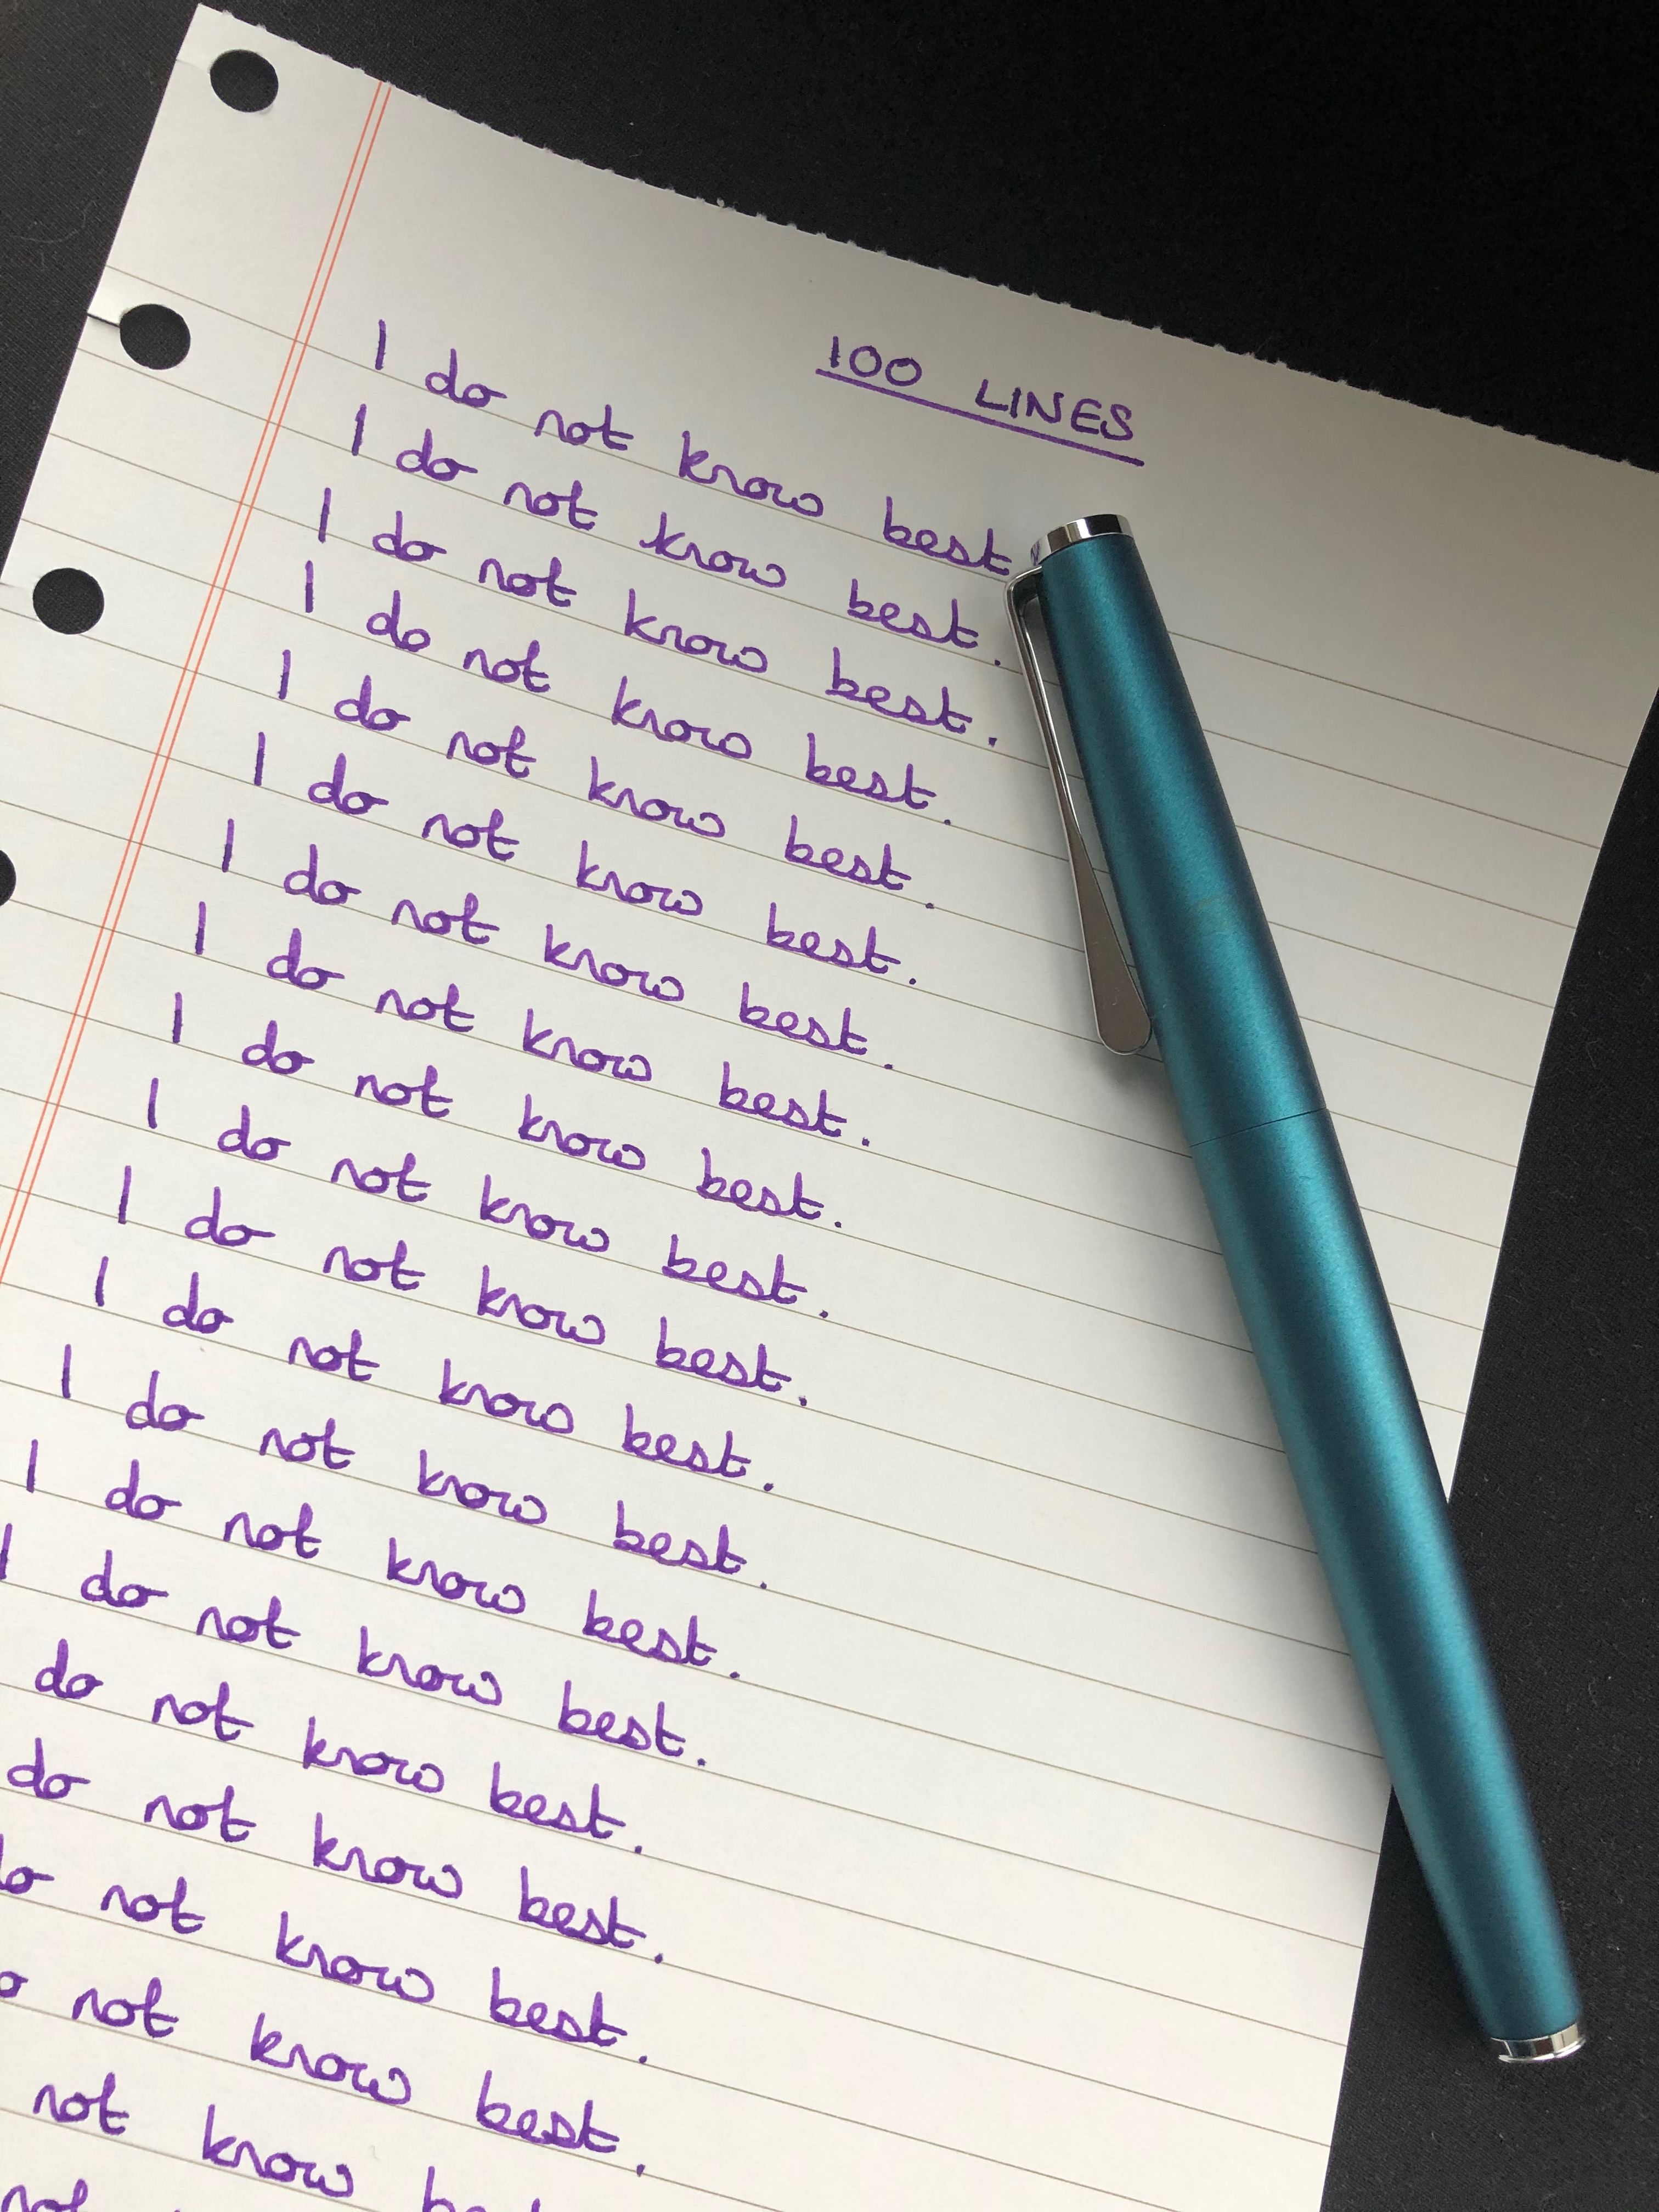 100 LINES
I do not know best
I do not know best.
I do not know best.
I do not know best.
I do not know best.
I do not know best.
I do not know best.
I do not know best.
I do not know best.
I do not know best.
I do not know best.
I do not know best.
I do not know best.
I do not know best.
I do not know best.
do not know best.
do not know best.
do not know best.
not know best.
not know
not